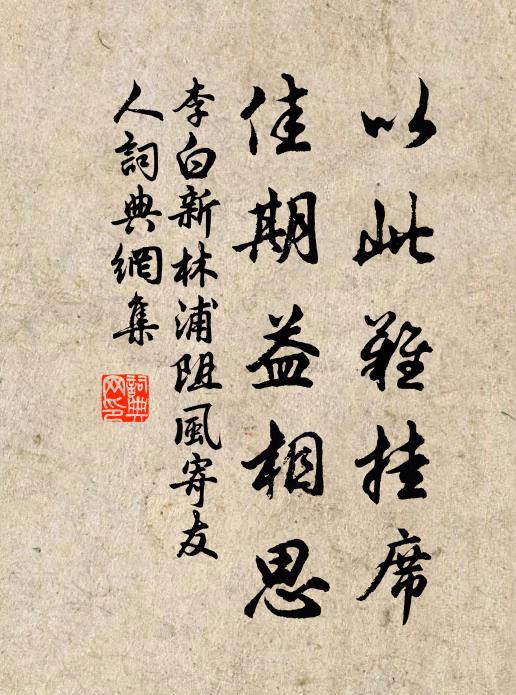 以此難挂席
佳期益相思
李白新林浦阻風寄友
人詞典網集
詞典網印